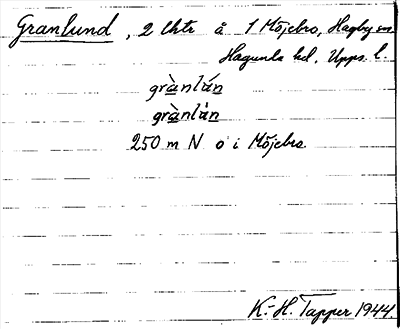 Granlund, 2 lhtr å 1 Möjebro, Hagby sn
Hagunda hd, Upps. l.
grànlún
grànlún
250 m N o i Möjebro
K.-H. Tapper 1944